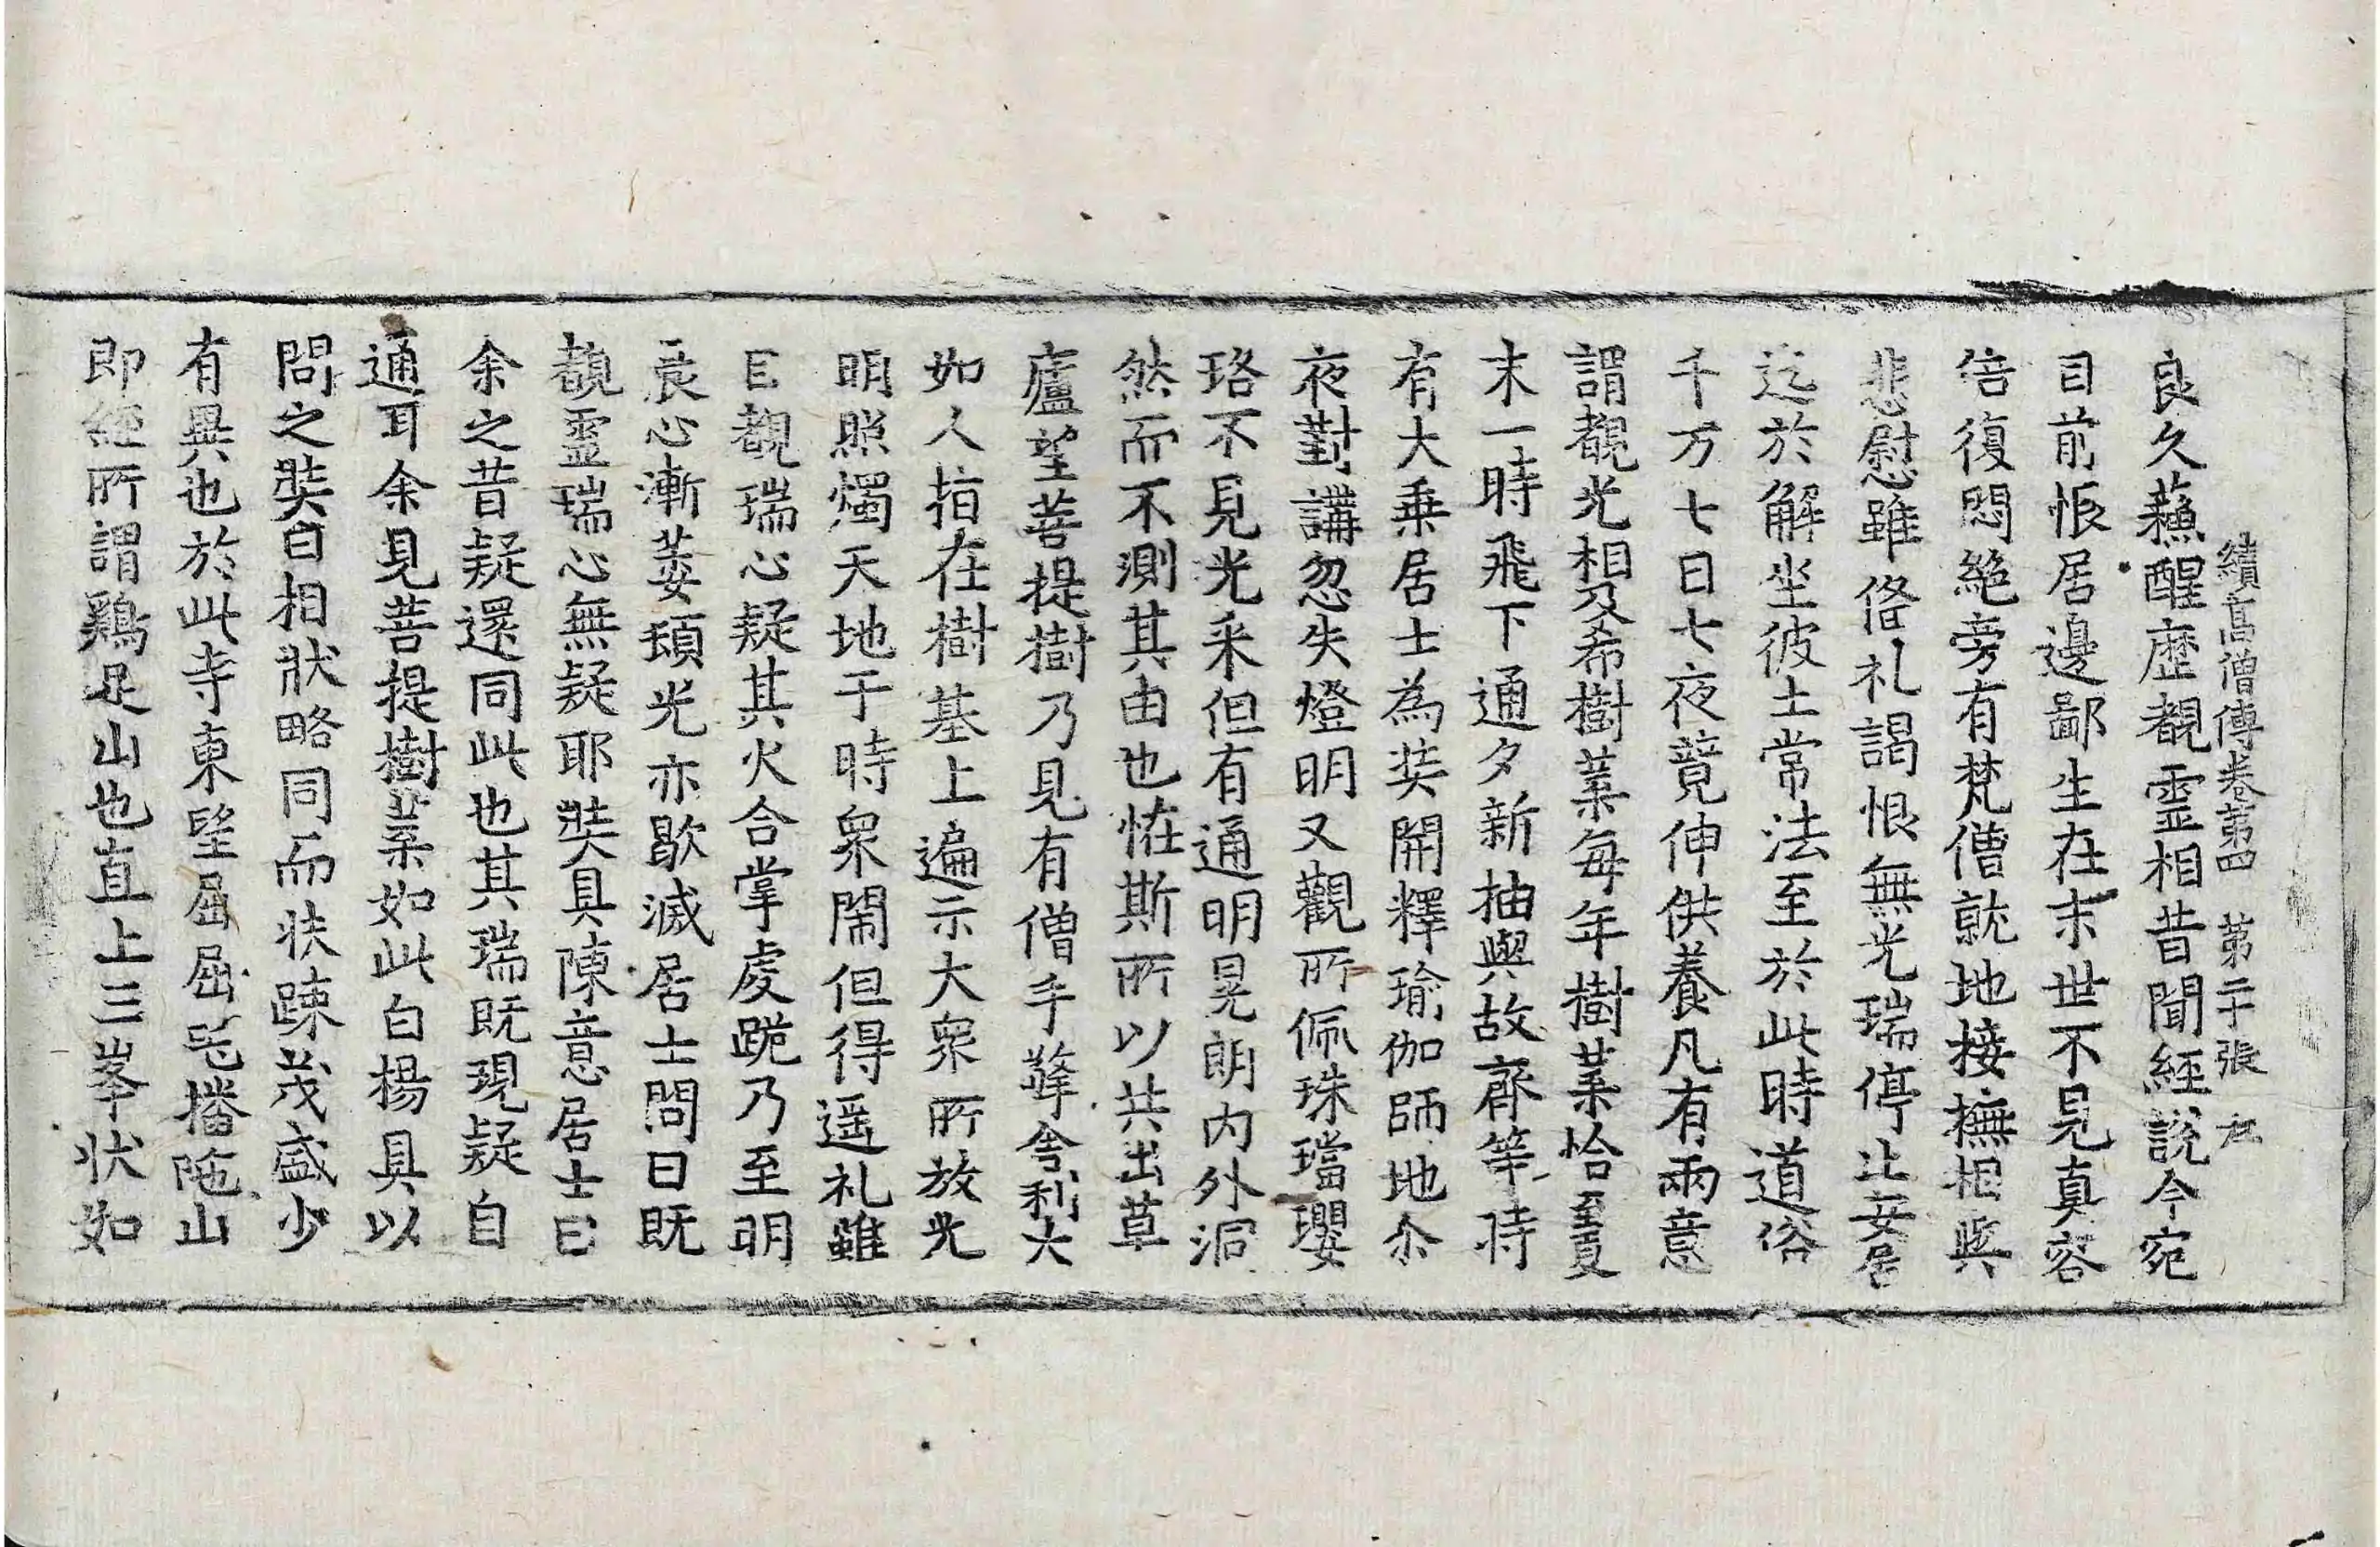 續高僧傳卷第四 第二十張 左
良久蘇醒歷覩靈相昔聞經說今宛
目前恨居邊鄙生在末世不見真容
倍復悶絕旁有梵僧就地接撫相與
悲慰雖俻礼謁恨無光瑞停止安居
迄於解坐彼土常法至於此時道俗
千万七日七夜竟伸供養凡有兩意
謂覩光相及希樹葉每年樹葉恰至夏
末一時飛下通夕新抽與故齊等時
有大乗居士為奘開釋瑜伽師地尒
夜對講忽失燈明又觀所佩珠璫瓔
珞不見光采但有通明晃朗內外洞
然而不測其由也恠斯所以共出草
廬望菩提樹乃見有僧手擎舍利大
如人指在樹基上遍示大眾所放光
明照燭天地于時眾閙但得遥礼雖
目覩瑞心疑其火合掌虔跪乃至明
晨心漸萎頓光亦歇滅居士問曰既
覩靈瑞心無疑耶奘具陳意居士曰
余之昔疑還同此也其瑞既現疑自
通耳余見菩提樹葉如此白楊具以
問之奘曰相狀略同而扶踈茂盛少
有異也於此寺東望屈屈吒播陁山
即經所謂鷄足山也直上三峯狀如